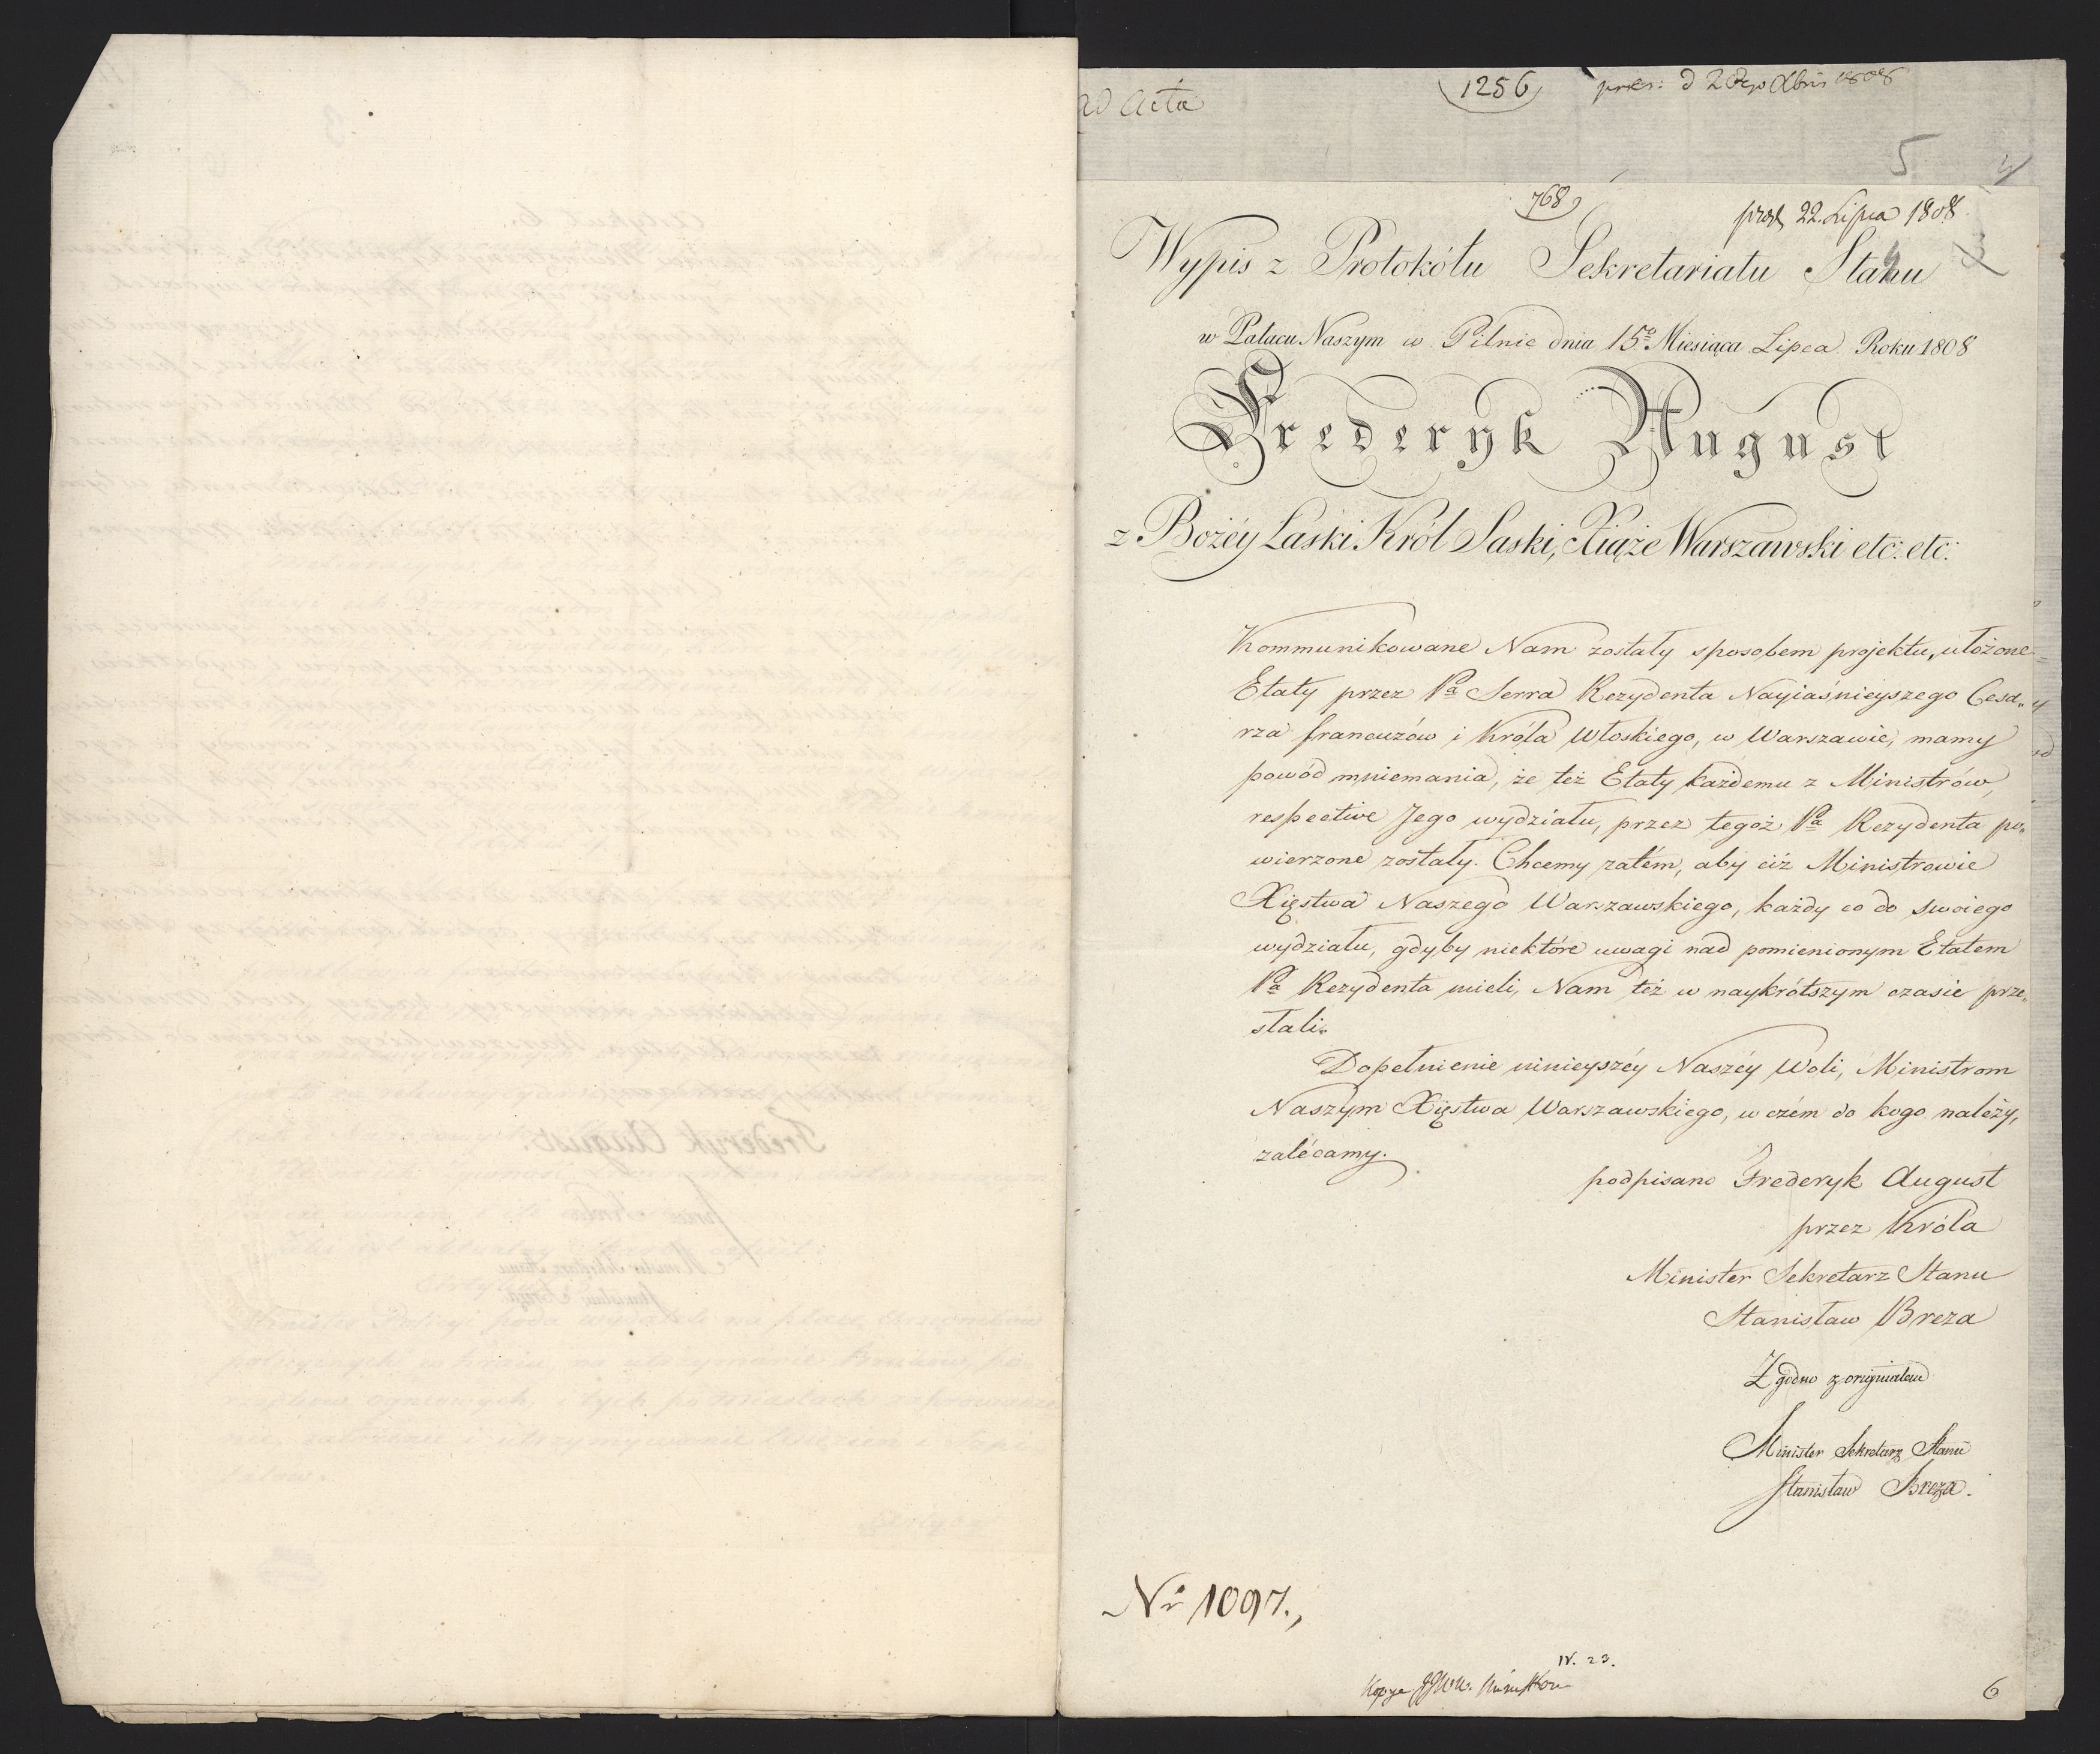 ad Acta
1256
768
5
prez. 22. Lipca 1808
Wypis z Protokółu Sekretariatu Stanu
w Pałacu Naszym w Pilnic dnia 15º Miesiąca Lipca Roku 1808
Frederyk August
z Bożéy Łaski Król Saski, Xiąże Warszawski etc: etc:
Kommunikowane Nam zostały sposobem projektu, ułożone
Etaty przez Pª Serra Rezydenta Nayiaśnieyszego Cesa„
rza francuzów i Króla Włoskiego, w Warszawie, mamy
powód mniemania, że też Etaty każdemu z Ministrów,
respective Jego wydziału, przez tegoż Pª Rezydenta po„
wierzone zostały. Chcemy zatém, aby ciż Ministrowie
Xięstwa Naszego Warszawskiego, każdy co do swoiego
wydziału, gdyby niektóre uwagi nad pomienionym Etatem
Pª Rezydenta mieli, Nam też w naykrótszym czasie prze„
słali.
Dopełnienie ninieyszéy Naszéy Woli, Ministrom
Naszym Xięstwa Warszawskiego, w czém do kogo należy,
zalécamy.
podpisano Frederyk August
przez Króla
Minister Sekretarz Stanu
Stanisław Breza
Zgodno z originałem
Minister Sekretarz Stanu
Stanisław Breza.
Nr 1097.,
IV. 23.
Kopya
6